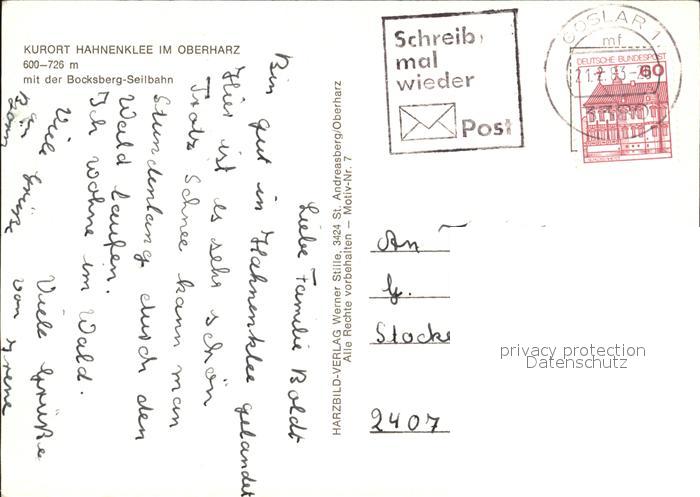 KURORT HAHNENKLEE IM OBERHARZ
600–726 m
mit der Bocksberg-Seilbahn
Liebe Familie Boldt
Bin gut in Hahnenklee gelandet
Hier ist es sehr schön
Trotz Schnee kann man
Stundenlang durch den
Wald laufen.
Ich wohne im Wald.
Viele Grüße
von Irene
Viele Grüße
HARZBILD-VERLAG Werner Stille, 3424 St. Andreasberg/Oberharz
Alle Rechte vorbehalten – Motiv-Nr. 7
Schreib
mal
wieder
Post
GOSLAR 1
mf
DEUTSCHE BUNDESPOST
60
An
Stocke
2407
privacy protection
Datenschutz